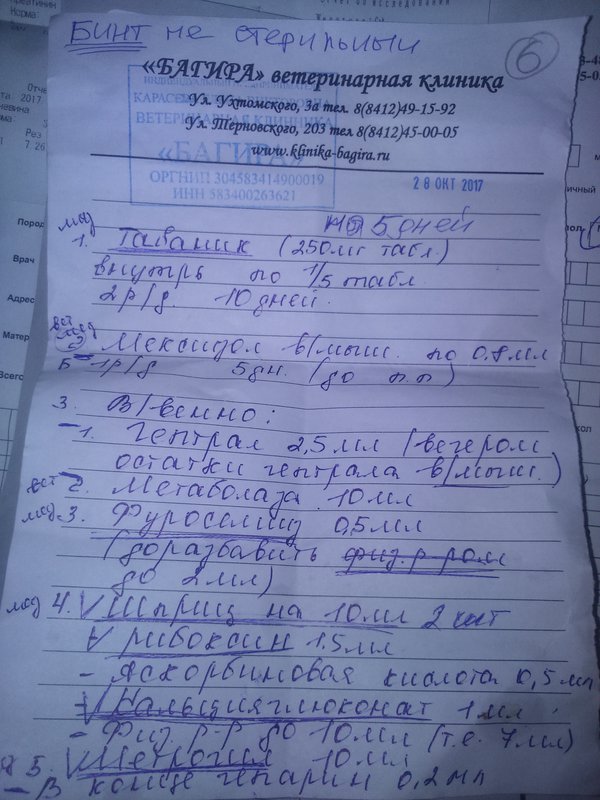 БИНТ не стерильный
6
«БАГИРА» ветеринарная клиника
Ул. Ухтомского, 3а тел. 8(8412)49-15-92
Ул. Терновского, 203 тел 8(8412)45-00-05
www.klinika-bagira.ru
ВЕТЕРИНАРНАЯ КЛИНИКА
«БАГИРА»
ОРГНИП 304583414900019
ИНН 583400263621
28 ОКТ 2017
на 5 дней
1. Таваник (250мг табл.)
внутрь по 1/5 табл.
2р/д. 10 дней.
Мексидол в/мыш. по 0,8мл
1р/д 5дн. (до п.п)
3. В/венно:
1. Гептрал 2,5мл (вечером
остатки гептрала в/мыш.)
2. Метаболаза 10мл
3. Фуросемид 0,5мл
(доразбавить физ.р-ром
до 2мл)
4. √ Шприц на 10мл 2 шт
√ рибоксин 1.5мл
- Аскорбиновая кислота 0,5мл
√ Кальцияглюконат 1мл
- Физ р-р до 10мл (т.е. 7мл)
5. √ Метрогил 10мл
- В конце гепарин 0,2мл